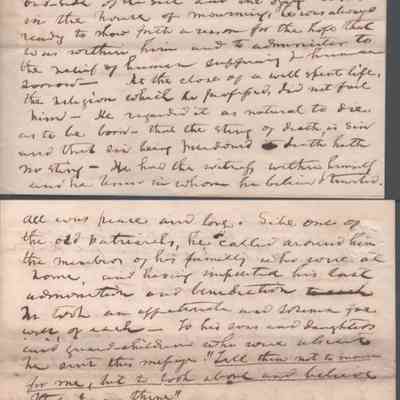 bedside of the sick and the dying
in the house of mourning, he was always
ready to show forth a reason for the hope that
was within him and to administer to
the relief of human suffering & human
sorrow — At the close of a well spent life,
the religion which he professed, did not fail
him — He regarded it as natural to die
as to be born — that the sting of death, is Sin
and that sin being pardoned death hath
no sting — He had the witness within himself
and he knew in whom he believed & trusted.
All was peace and love. Like one of
the old patriarchs, he called around him
the members of his family who were at
home, and having imparted his last
admonition and benediction
he took an affectionate and solemn fare
well of each — To his sons and daughters
and grandchildren who were absent
he sent this message "Tell them not to mourn
for me, but to look above and believe